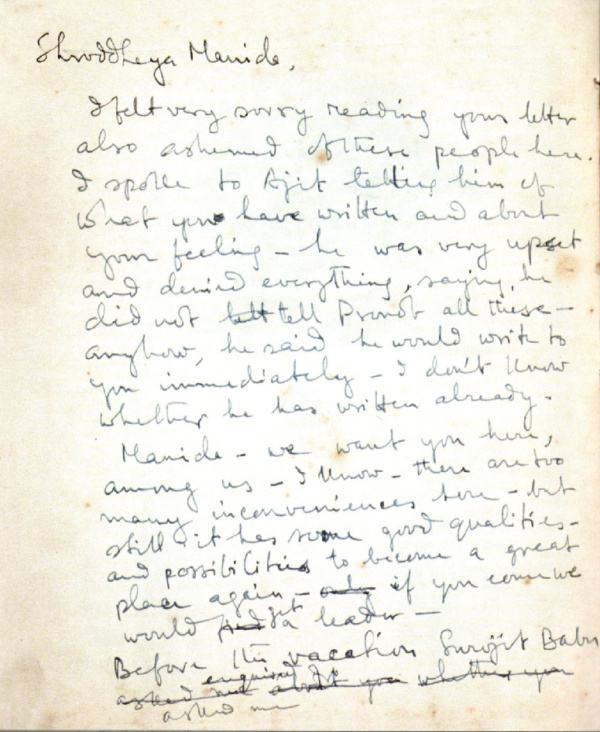 Shroddheya Manida,
I felt very sorry reading your letter
also ashamed of these people here.
I spoke to Ajit telling him of
what you have written and about
your feeling – he was very upset
and denied everything, saying, he
did not tell Pronob all these –
anyhow, he said he would write to
you immediately – I don't know
whether he has written already.
Manida – we want you here,
among us – I know – there are too
many inconveniences here – but
still it has some good qualities –
and possibilities to become a great
place again – only if you come we
would find get a leader –
Before the vacation Surojit Babu
enquired
asked me about you whether you
asked me